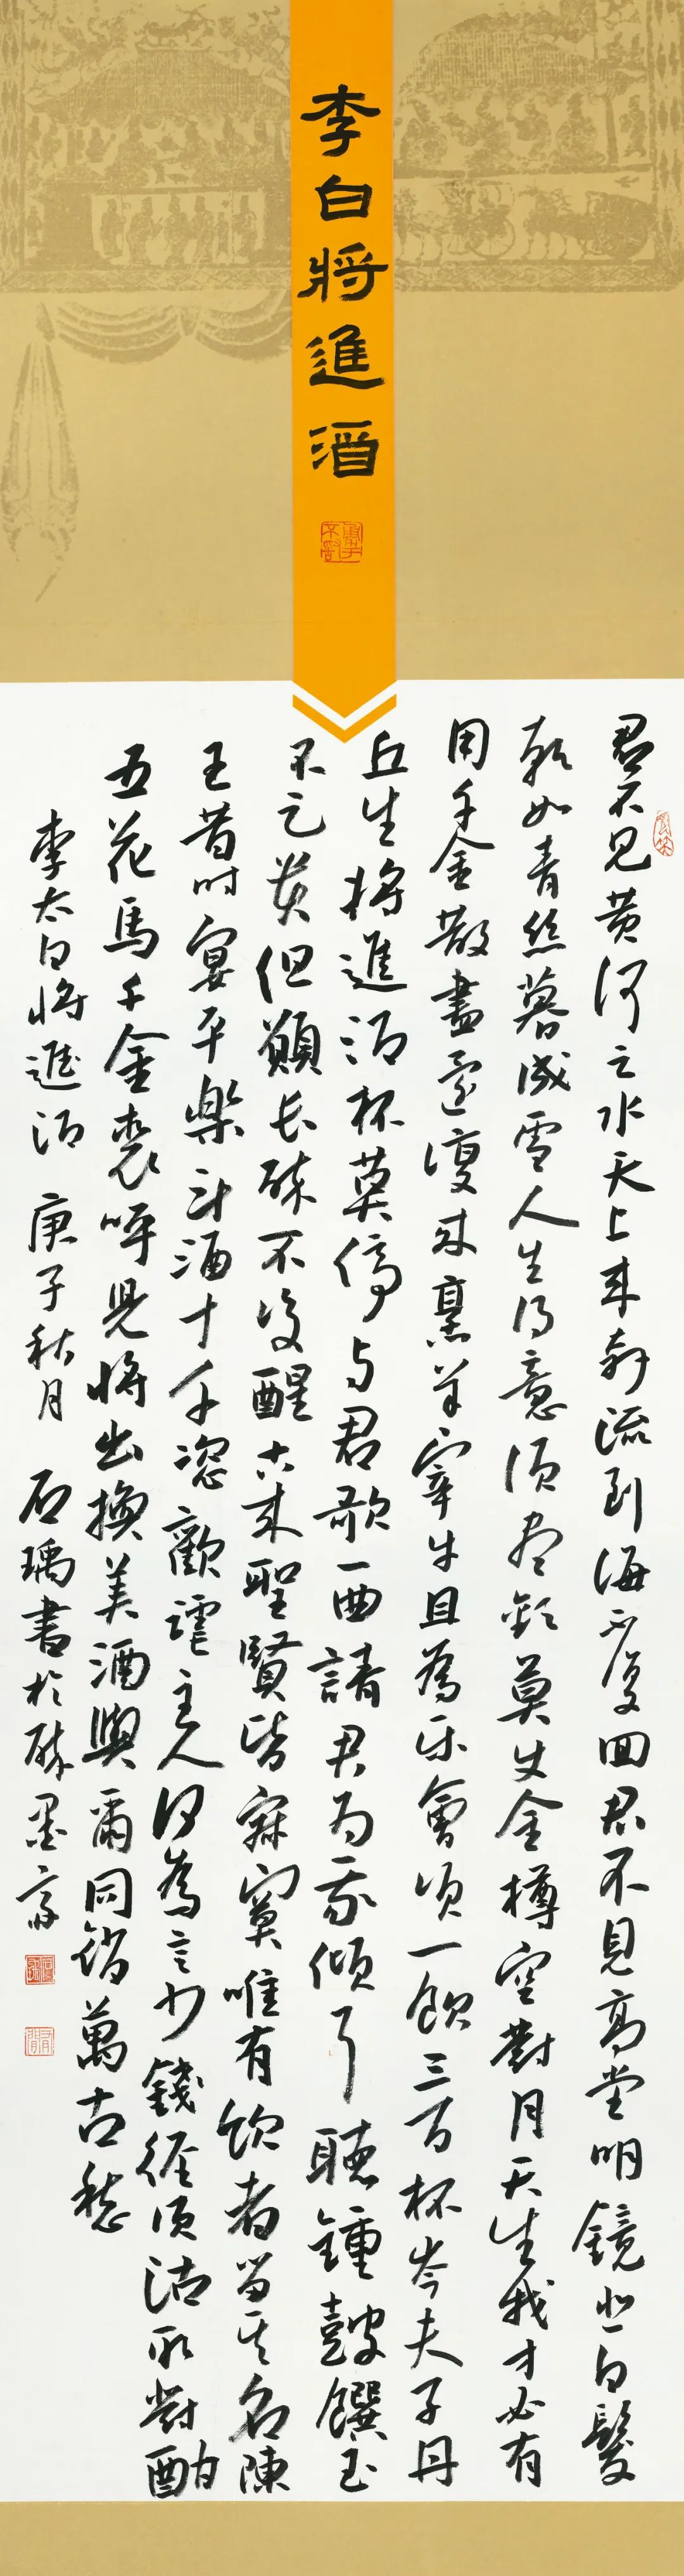 李白將進酒
君不見黄河之水天上来奔流到海不復回君不見高堂明鏡悲白髮
朝如青丝暮成雪人生得意須尽歡莫使金樽空對月天生我才必有
用千金散盡還復来烹羊宰牛且為乐會須一飲三百杯岑夫子丹
丘生将進酒杯莫停与君歌一曲請君为我傾耳聽鍾鼓饌玉
不足贵但願长醉不復醒古来聖賢皆寂寞唯有飲者留其名陳
王昔时宴平樂斗酒十千恣歡謔主人何為言少錢徑須沽取對酌
五花馬千金裘呼兒将出換美酒與爾同銷萬古愁
李太白将進酒 庚子秋月 石瑀書於醉墨斋